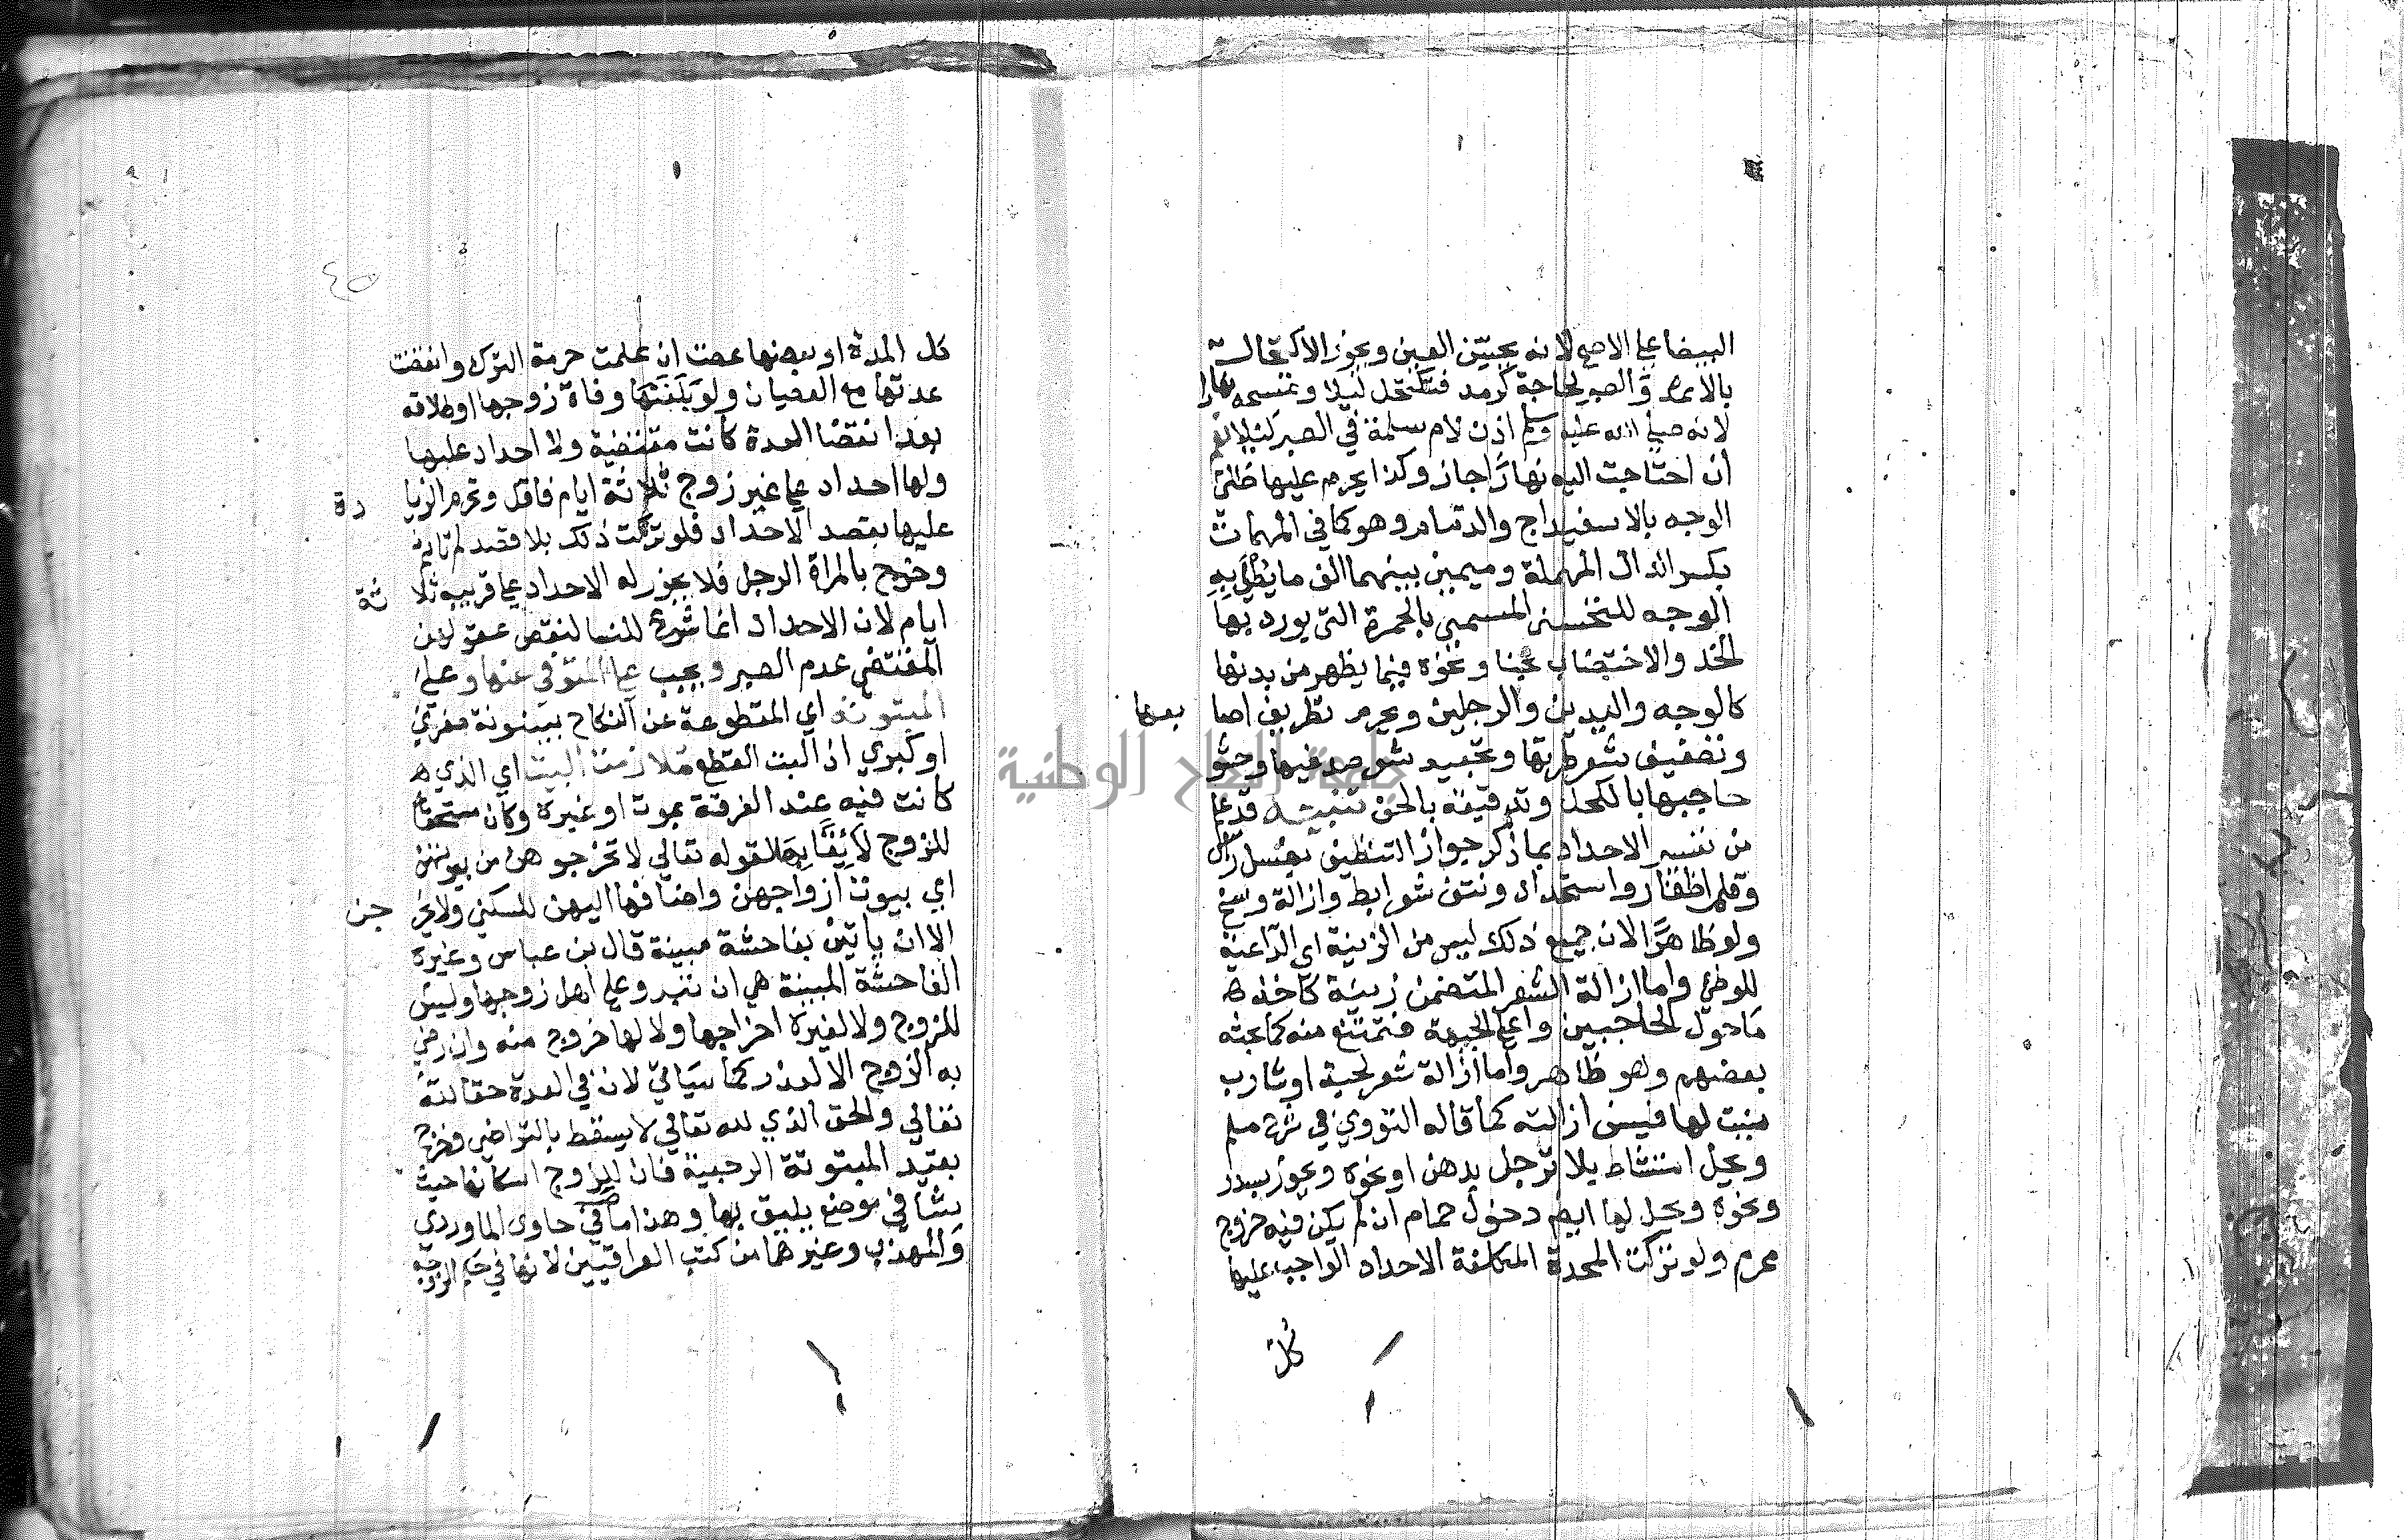 البيضا علي الاصح لانه يحسن العين ويجوز الاكتحال
بالاثمد والصبر لحاجة كرمد فتكتحل ليلا وتمسحه نهارا
لانه صلي الله عليه وسلم اذن لام سلمة في الصبر ليلا نعم
ان احتاجت اليه نهارًا جاز وكذا يحرم عليها طلي
الوجه بالاسفيداج والدمام وهو كما في المهمات
بكسر الدال المهملة وميمين بينهما الف ما يُطْلَي بِهِ
الوجه للتحسين المسمي بالحمرة التي يورد بها
الخد والاختضاب بحنا ونحوه فيما يظهر من بدنها
كالوجه واليدين والرجلين ويحرم تطريف اصا بعها
وتصفيف شعر طرتها وتجعيد شعر صدغيها وحشو
حاجبها بالكحل وتدقيقه بالحف تنبيه قد علم
من تفسير الاحداد بما ذكر جواز التنظيف بغسل راس
وقلم اظفار واستحداد ونتف شعر ابط وازالة وسخ
ولو ظاهرًا لان جميع ذلك ليس من الزينة اي الداعية
للوطي واما ازالة الشعر المتضمن زينة كاخذ ه
ما حول الحاجبين واعلا الجبهة فتمتنع منه كما بحثه
بعضهم وهو ظاهر واما ازالة شعر لحية او شارب
ينبت لها فيسن ازالته كما قاله النووي في شرح مسلم
ويحل امتشاط بلا ترجل بدهن او نحوه ويجوز بسدر
ونحوه ويحل لها ايضا دخول حمام ان لم يكن فيه خروج
محرم ولو تركت المحدة المكلفة الاحداد الواجب عليها
كلّ
كل المدة او بعضها عصت ان علمت حرمة الترك وانقضت
عدتها مع العصيان ولو بَلَغَتْهَا وفاة زوجها او طلاقه
بعد انقضا العدة كانت منقضية ولا احداد عليها
ولها احداد علي غير زوج ثلاثة ايام فاقل وتحرم الزيا دة
عليها بقصد الاحداد فلو تركت ذلك بلا قصد لم تاثم
وخرج بالمراة الرجل فلا يجوز له الاحداد علي قريبه ثلا ثة
ايام لان الاحداد انما شرع للنسا لنقص عقولهن
المقتضي عدم الصبر ويجب علي المتوفي عنها وعلي
المبتوتة اي المقطوعة عن النكاح ببينونة صغري
او كبري اذ البت القطع ملازمت البيت اي الذي ه
كانت فيه عند الفرقة بموت او غيره وكان مستحقا
للزوج لائقا بها لقوله تعالي لا تخرجوهن من بيوتهن
اي بيوت ازواجهن واضافها اليهن للسكني ولا يخر جن
الا ان ياتين بفاحشة مبينة قال بن عباس وغيره
الفاحشة المبينة هي ان تبدو علي اهل زوجها وليس
للزوج ولا لغيره اخراجها ولا لها خروج منه وان رضي
به الزوج الا لعذر كما سياتي لان في العدة حقا لله
تعالي والحق الذي لله تعالي لا يسقط بالتراضي وخرج
بقيد المبتوتة الرجعية فان للزوج اسكانها حيث
يشا في موضع يليق بها وهذا ما في حاوي الماوردي
والمهذب وغيرهما من كتب العراقيين لانها في حكم الزوجة
جامعة النجاح الوطنية